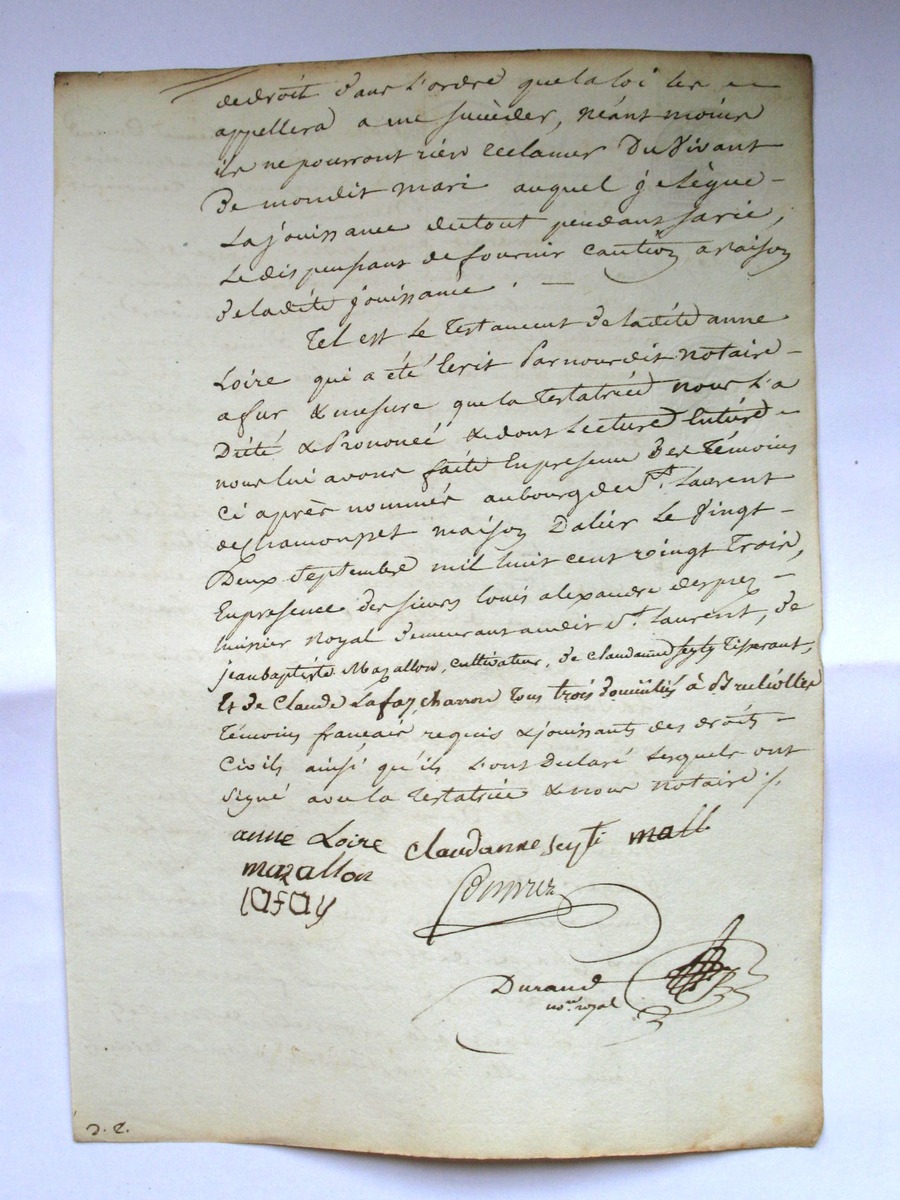 de droit dans l'ordre que la loi les
appellera a me succèder, néant moins
ils ne pourront rien reclamer Du Vivant
De mondit mari auquel je lègue -
La jouissance du tout pendant sa vie,
Le dispensant de fournir caution a raison
de la dite jouissance. -
Tel est le Testament de ladite anne
Loire qui a été Ecrit Par nous dit notaire -
a fur & mesure que la Testatrice nous L'a
Dicté & Prononcé & dont Lecture Entière -
nous lui avons faite En presence des Témoins
Ci après nommés au bourg de St. Laurent
de Chamousset maison Dalier Le Vingt -
Deux Septembre mil huit cent vingt Trois,
En presence des sieurs louis alexandre desprez -
huissier Royal demeurant audit St. Laurent, de
jean baptiste Mazallon, cultivateur, de Claudanne Seyti Tisserant,
Et de Claude Lafay, charron tous trois domiciliés à Brulliolles
Témoins francais requis & jouissants des droits -
Civils ainsi qu'ils L'ont Declaré Lesquels ont
signé avec la Testatrice & nous notaire ./.
anne Loire claudanne seyti
mazallon
lafay
Durand
no.re royal